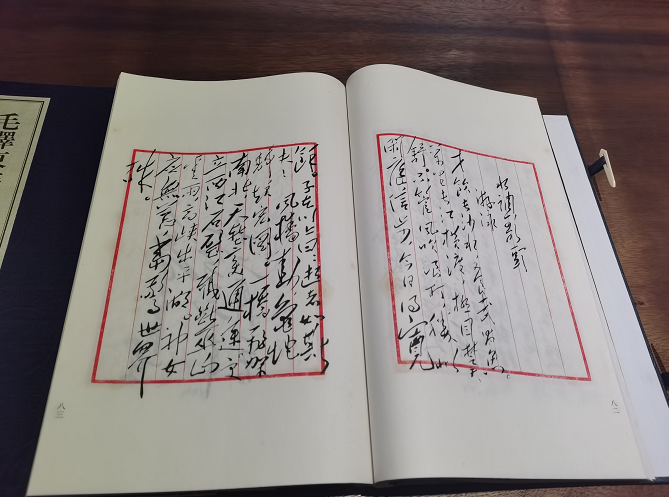 水调歌头
游泳
才飲長沙水,又食武昌魚。
万里長江橫渡,極目楚天
舒。不管風吹浪打,勝似
闲庭信步,今日得寬
八二
餘。子在川上曰:逝者如斯
夫!風檣動,龜蛇
静,起宏图。一橋飛架
南北,天塹变通途。更
立西江石壁,截断巫山
云雨,高峡出平湖。神女
应無恙,當驚世界
殊。
八三
毛澤東